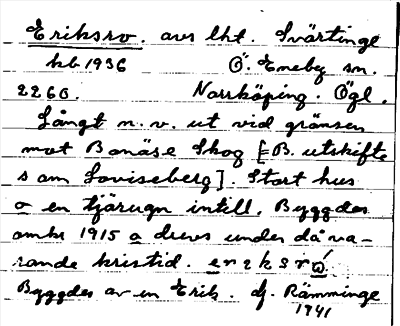 Eriksro. avs lht. Svärtinge
kb 1936 Ö. Eneby sn.
2260. Norrköping. Ögl.
Långt n. v. ut vid gränsen
mot Bonäse Skog [B. utskifte
som Loviseberg]. Stort hus
o en tjärugn intill. Byggdes
omkr 1915 o drevs under dåva-
rande kristid.
Byggdes av en Erik. dj. Rämminge
1941